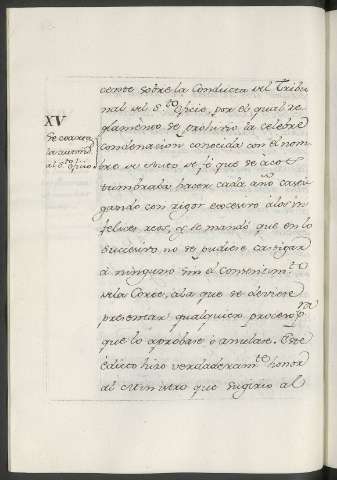 XV
Se coarta
la autorid.
al S.to Oficio
cente sobre la Conducta del Tribu
nal del S.to oficio, por el qual re
glamento se prohivio la celebre
condenacion conocida con el nom
bre de Auto de fé que se acos
tumbraba hacer cada año casti
gando con rigor excesivo á los in
felices reos, y se mandó que en lo
succesivo no se pudiese castigar
á ninguno sin el Consentim.to
de la Corte, á la que se deviese
presentar qualquier proceso p.ra
que lo aprobase ó anulase. Este
edicto hizo verdaderam.te honor
al Ministro que sugirio al